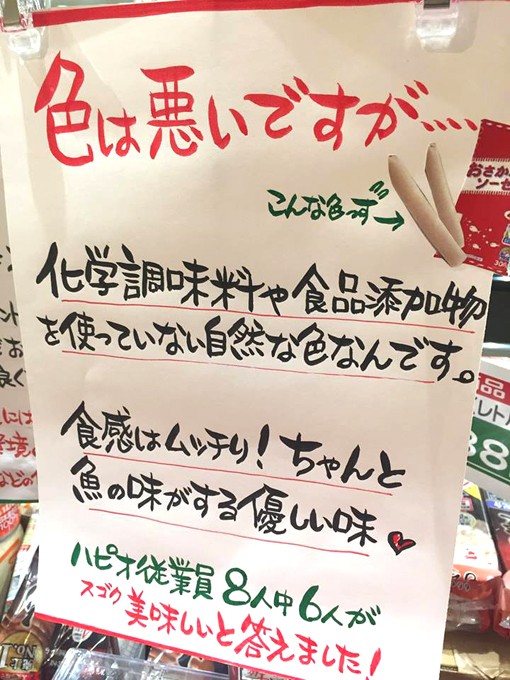 色は悪いですが....
こんな色っす→
おさか
ソーセ
化学調味料や食品添加物
を使っていない自然な色なんです。
食感はムッチリ!ちゃんと
魚の味がする優しい味
ハピオ従業員8人中6人が
スゴク美味しいと答えました!
品
レトル
88